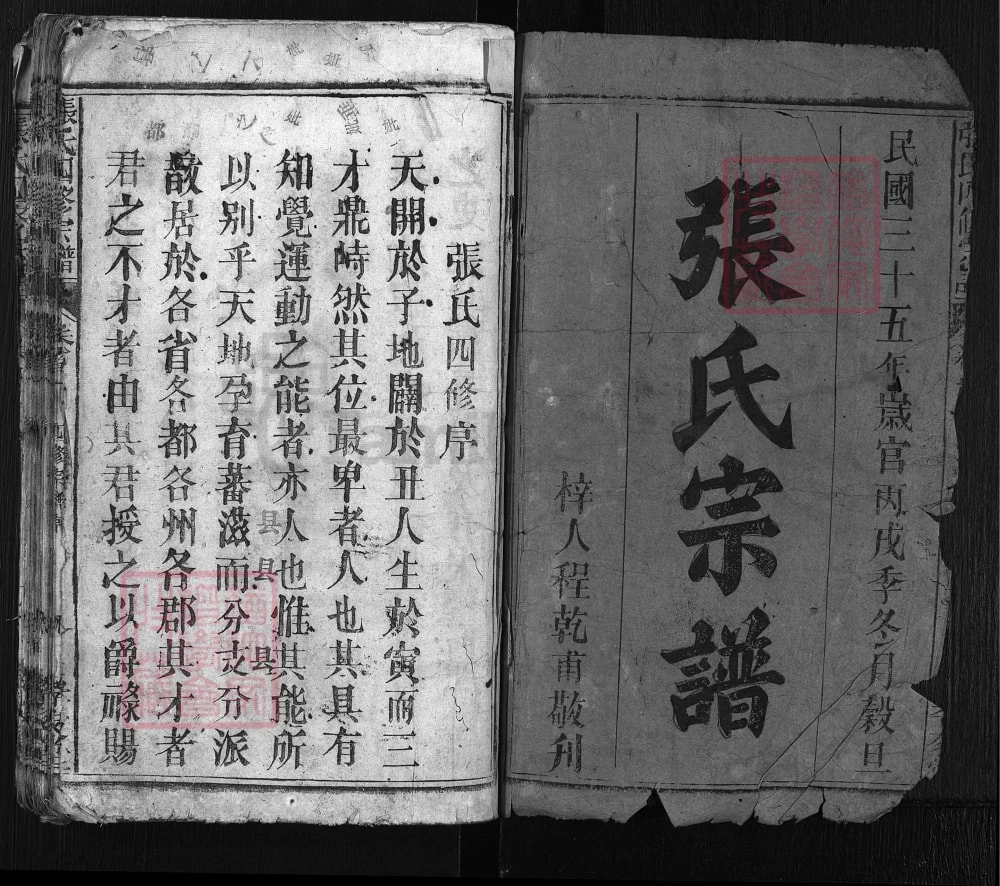 民國三十五年歲官丙戌季冬月穀旦
張氏宗譜
梓人程乾甫敬刋
張氏四修序
天開於子地闢於丑人生於寅而三
才鼎峙然其位最卑者人也其具有
知覺運動之能者亦人也惟其能所
以別乎天地孕育蕃滋而分支分派
散居於各省各都各州各郡其才者
君之不才者由其君授之以爵祿賜
張氏四修宗譜